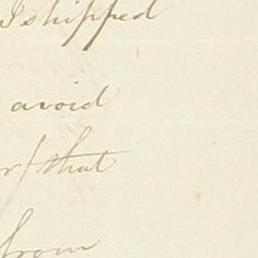 I shipped
avoid
r/ that
from